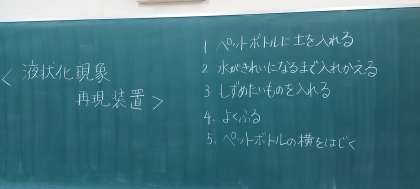 ＜液状化現象
再現装置＞
1 ペットボトルに土を入れる
2 水がきれいになるまで入れかえる
3 しずめたいものを入れる
4. よくふる
5. ペットボトルの横をはじく